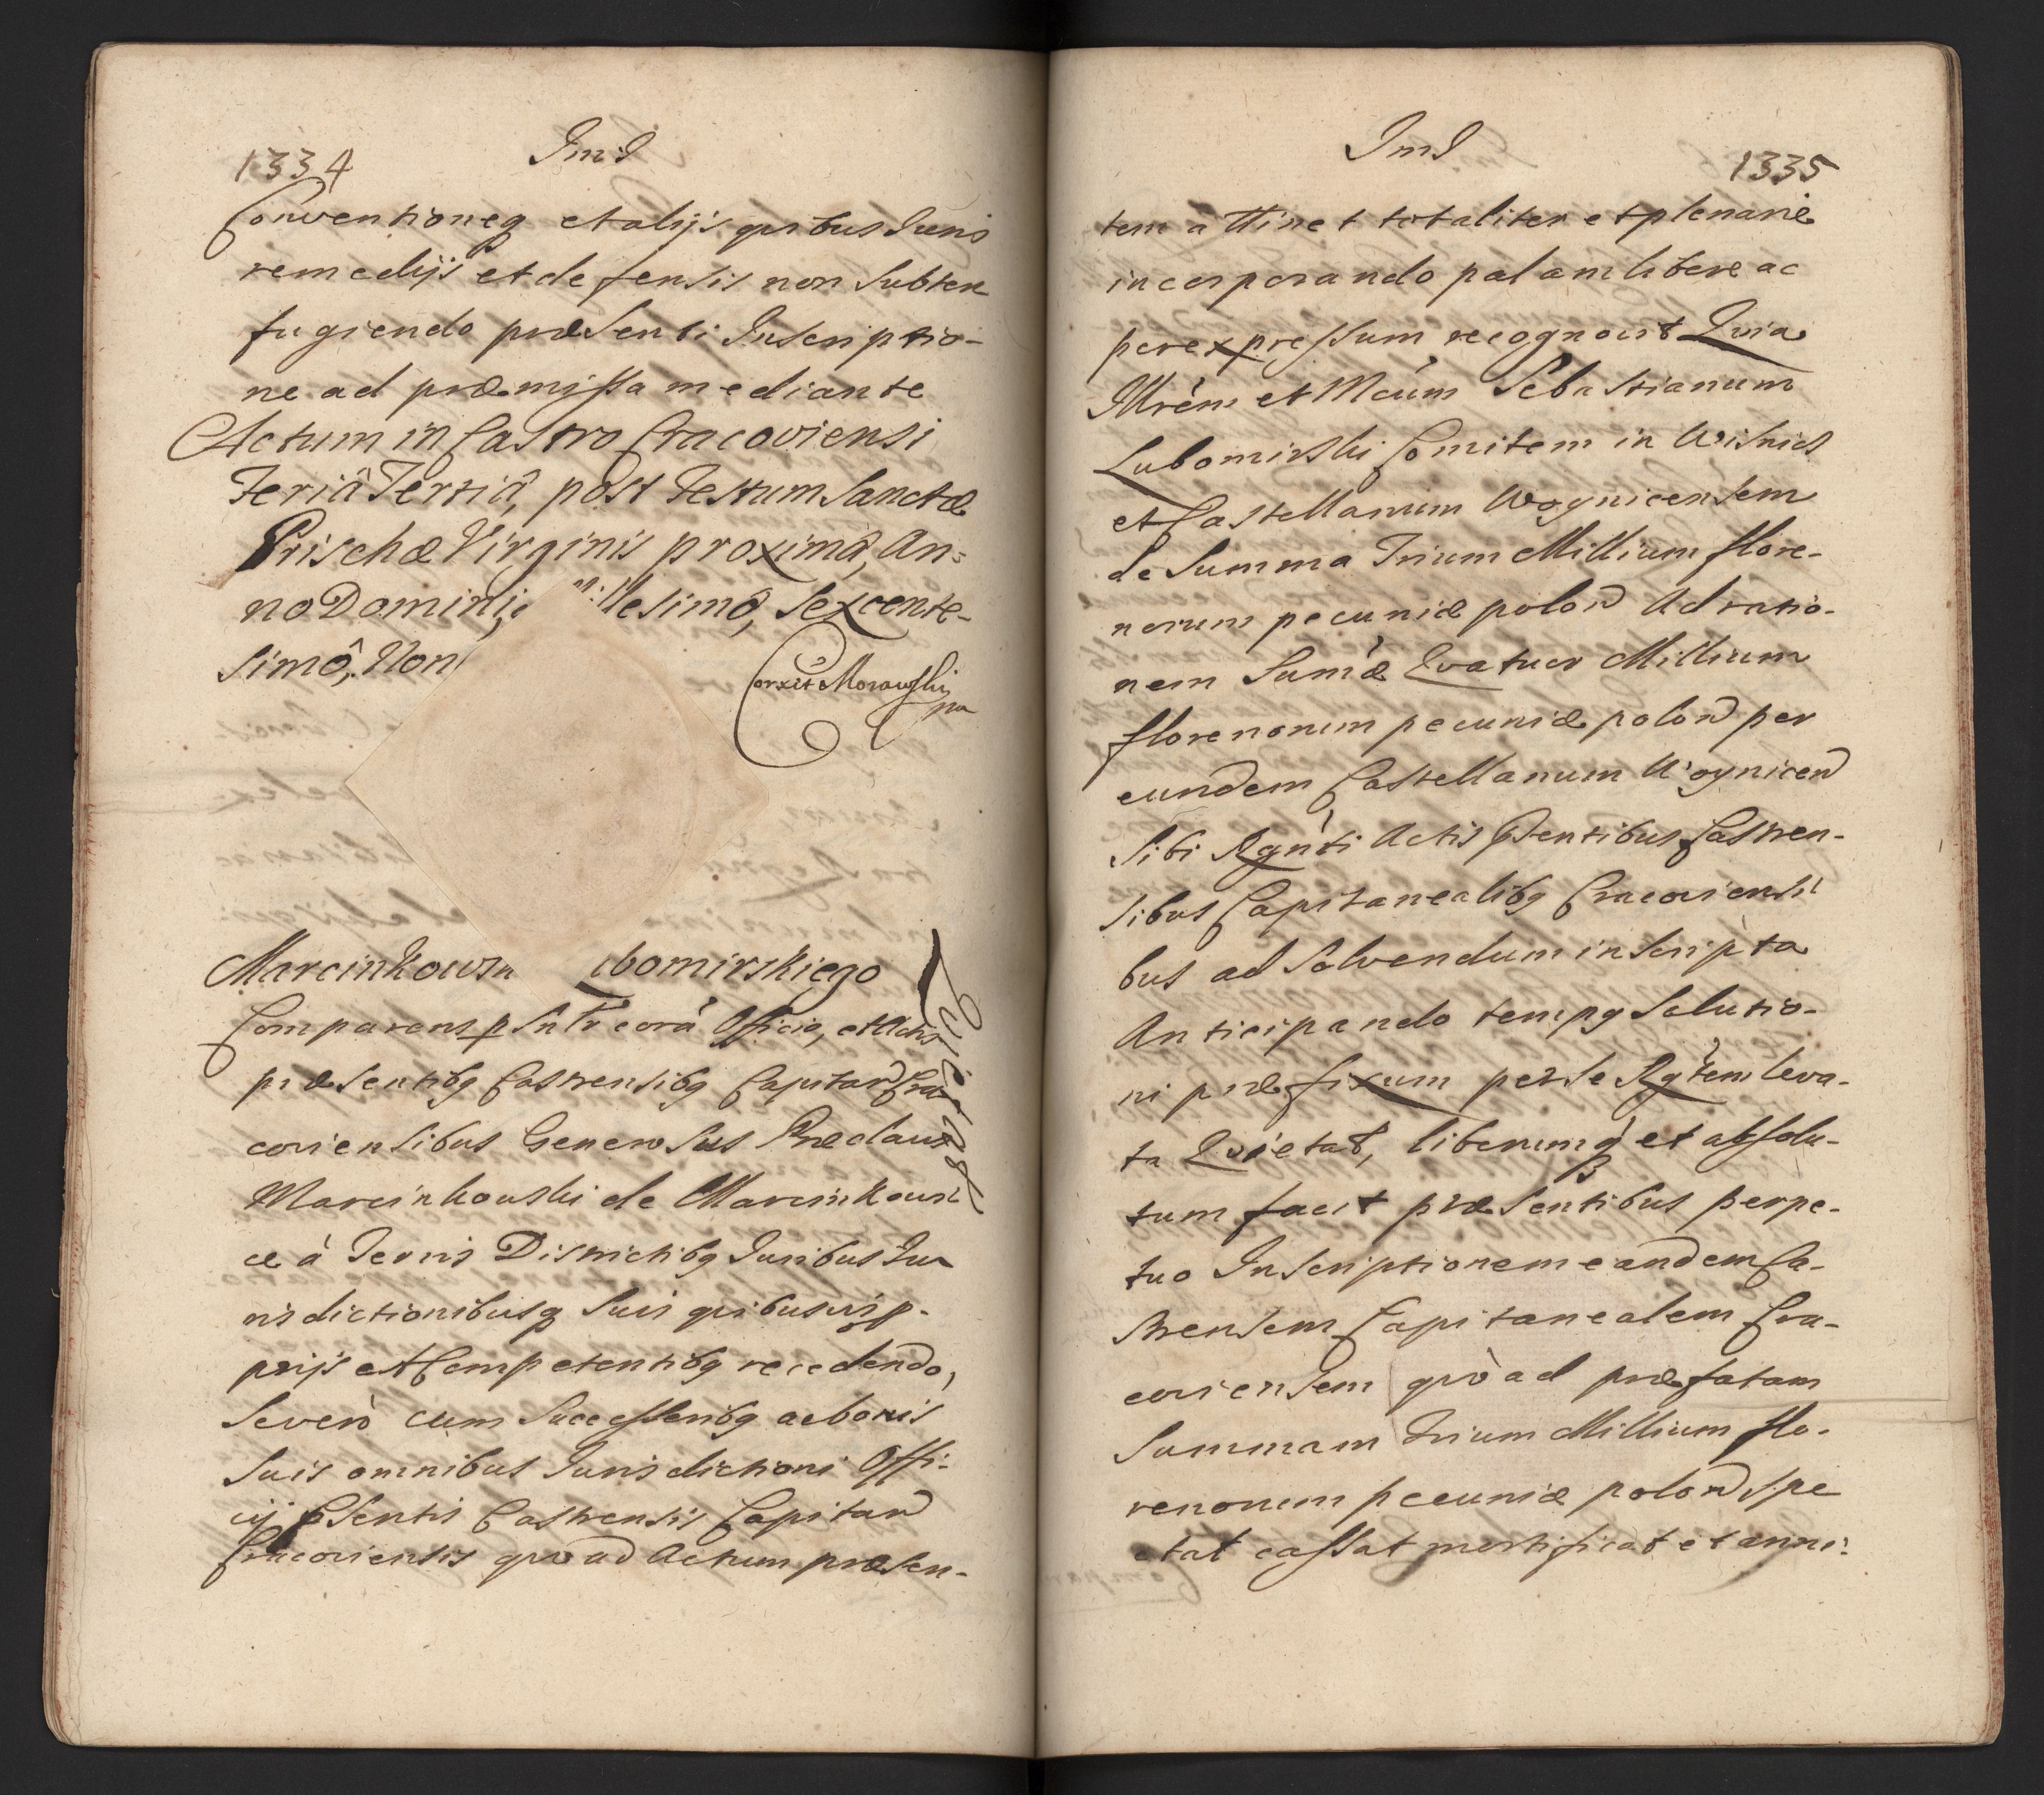 1334
Ind
Conventioneq et alijs quibus Juris
remedijs et defensis non subter
fugiendo præsenti Inscriptio-
ne ad præmissa mediante
Actum in Castro Cracoviensi
Feriâ Tertiâ, post Festum Sanctæ
Prischæ Virginis proximâ, An=
no Domini, esimô, Sexcente-
simô, Non
Corxit Morawski
mp
Marcinkowsk bomirskiego
Comparens psntr corā Officio, et Actis
præsentibq Castrensibq Capitan Cra
coviensibus Generosus Prædaus
Marcinkowski de Marcinkowi
ce à Terris Districtibq Juribus Ju
risdictionibusq suis quibusvis p-
prijs et Competentibq recedendo,
Se verò cum Successoribq ac bonis
suis omnibus Jurisdictioni Offi-
cij psentis Castrensis Capitan
Cracoviensis quo ad Actum præsen-
Ind
1335
tem attinet totaliter et plenariè
incorporando palam libere ac
per expressum recognovit Quia
Illrēm et Mcūm Sebastianum
Lubomirski Comitem in Wisnicz
et Castellanum Woynicensem
de Summa Trium Millium flore-
norum pecuniæ polon Ad ratio-
nem Sumæ Quatuor Millium
florenorum pecuniæ polon per
eundem Castellanum Woynicen
sibi Rgnti Actis psentibus Castren-
sibus Capitanealibq Cracoviensi
bus ad Solvendum inscripta
Anticipando tempq Solutio-
ni præfixum per se Rgtem leva-
ta Quietat, liberumq et absolu-
tum facit præsentibus perpe-
tuo Inscriptionem eandem Ca-
strensem Capitanealem Cra-
coviensem quò ad præfatam
Summam Trium Millium flo-
renorum pecuniæ polon spe
ctat cassat mortificat et anni-